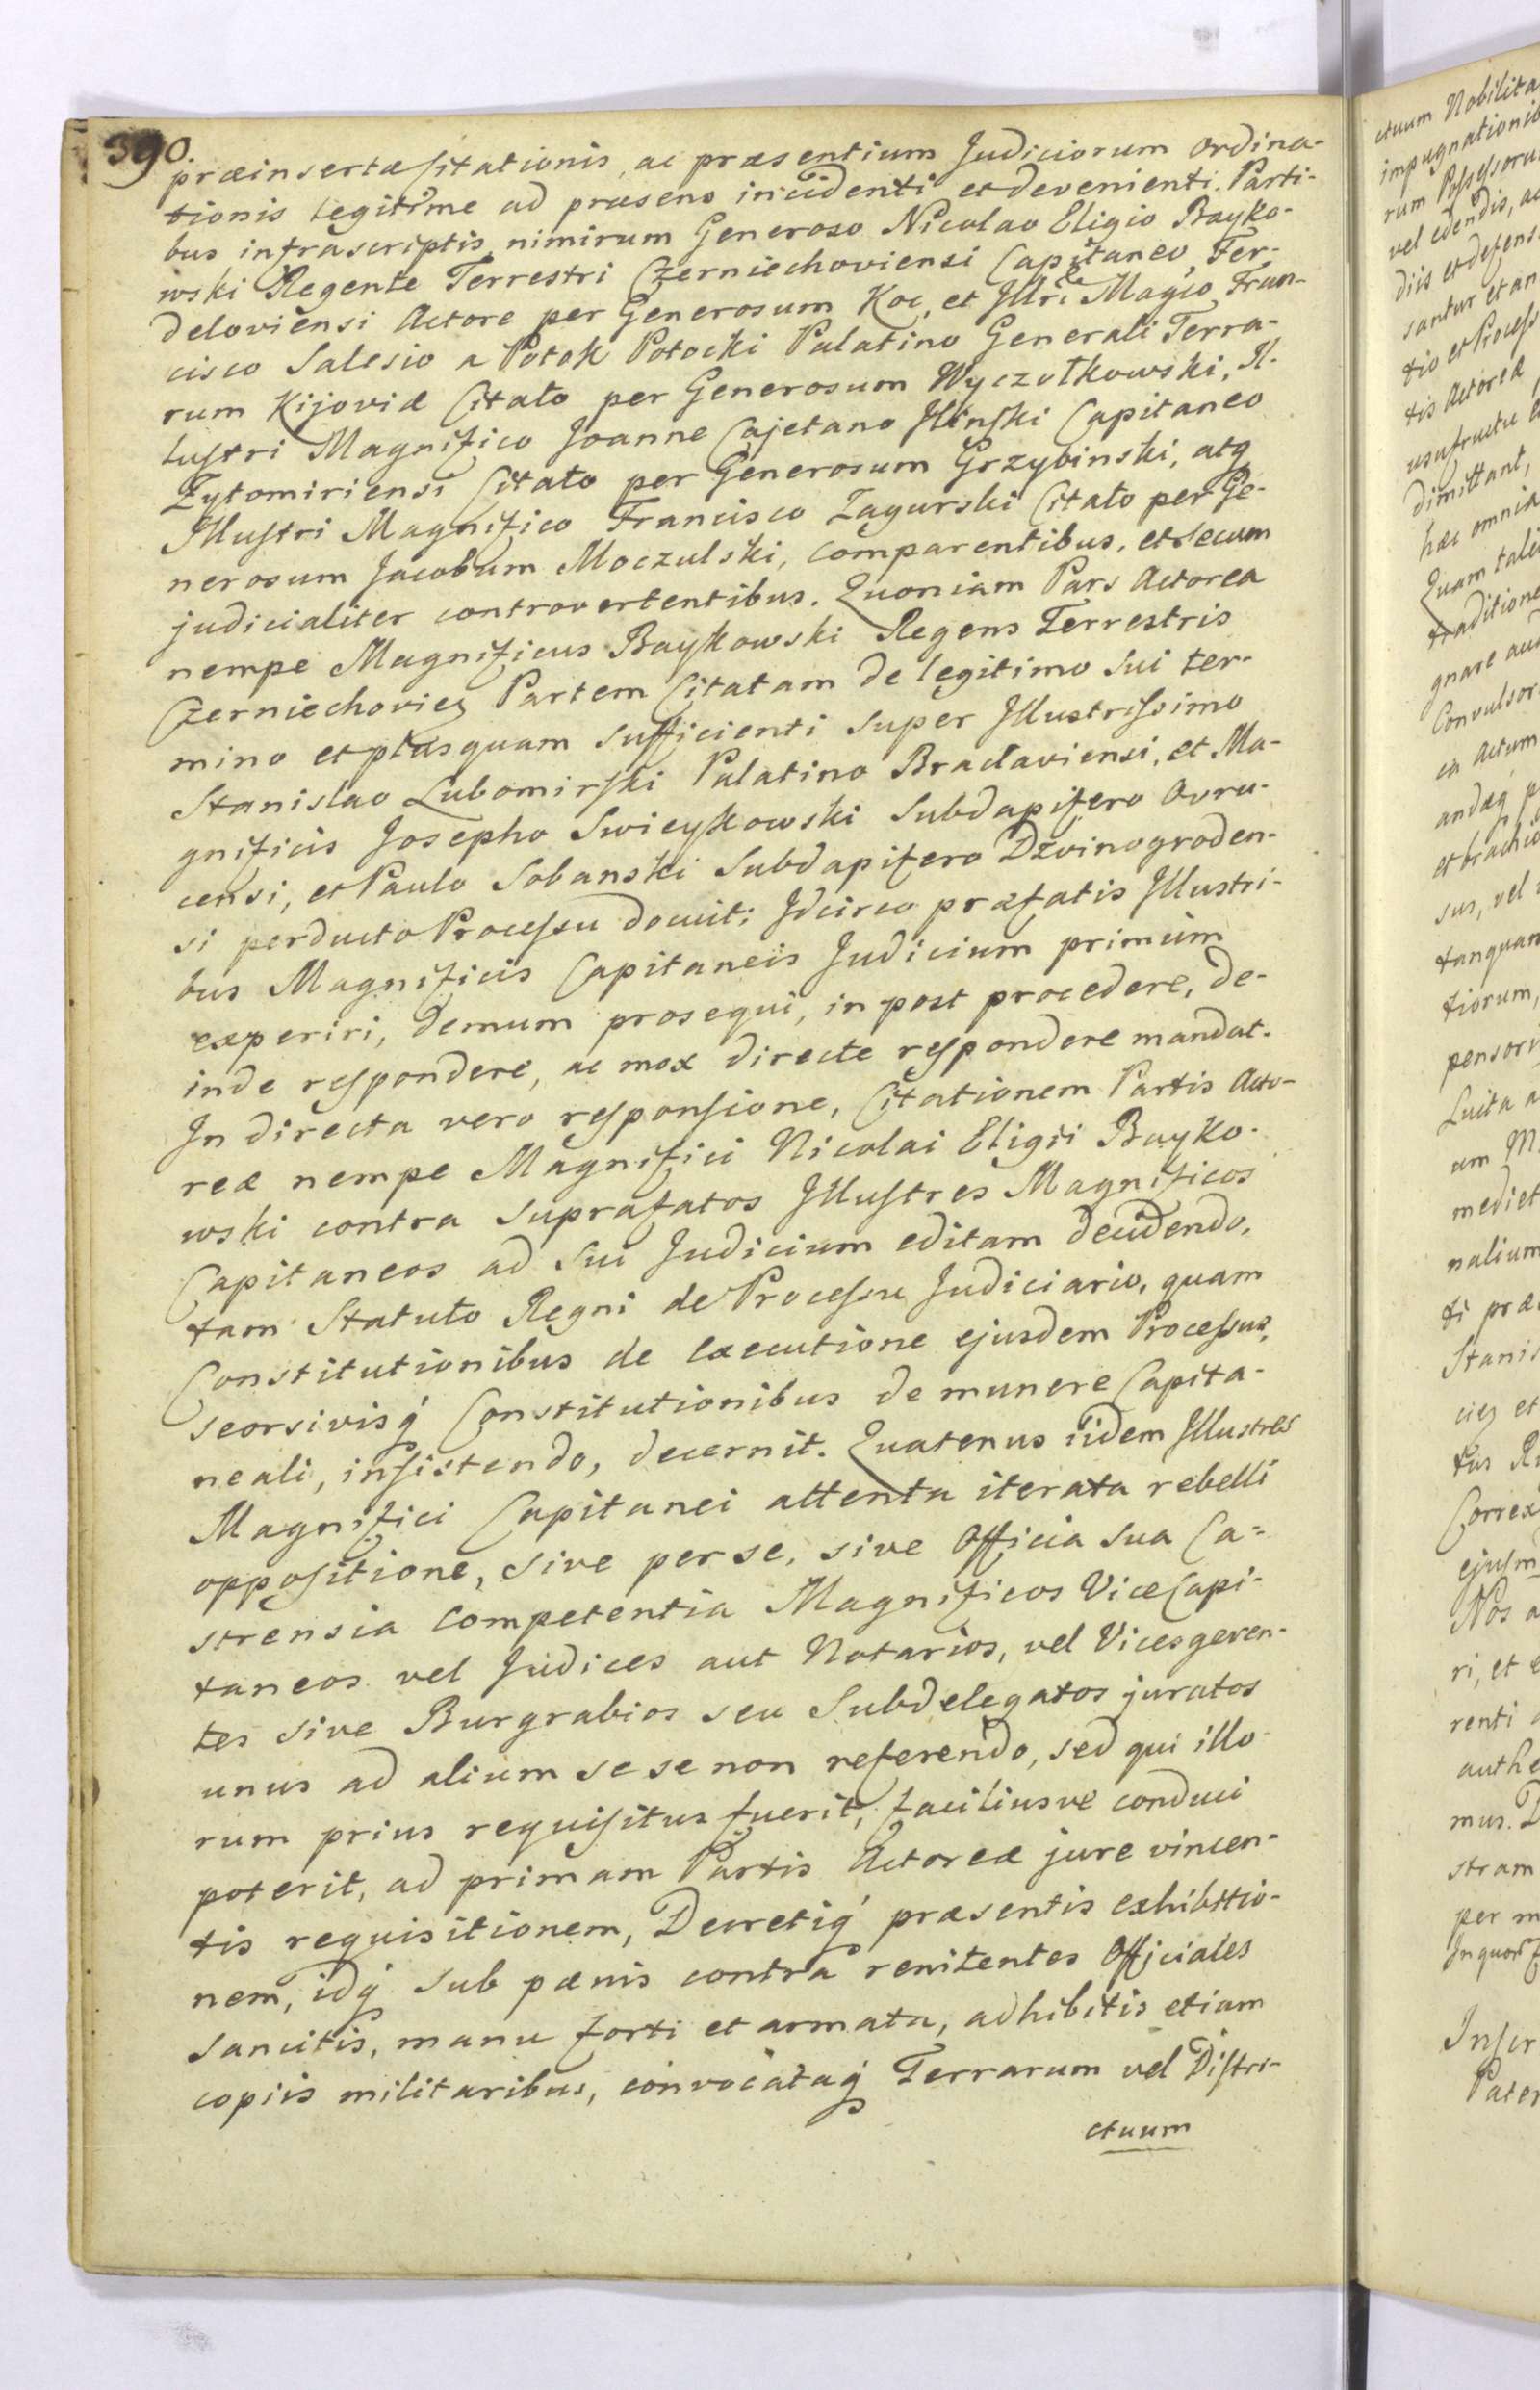 390.
præinsertæ Citationis, ac præsentium Judiciorum Ordina-
tionis legitime ad præsens incidenti et devenienti. Parti-
bus infrascriptis nimirum Generoso Nicolao Eligio Bayko-
wski Regente Terrestri Czerniechoviensi Capitaneo Fer-
deloviensi Actore per Generosum Koc, et Jllri Magco Fran-
cisco Salesio a Potok Potocki Palatino Generali Terra-
rum Kijoviæ Citato per Generosum Wyczołkowski, Jl-
lustri Magnifico Joanne Cajetano Jlinski Capitaneo
Zytomiriensi Citato per Generosum Grzybinski, atq
Jllustri Magnifico Francisco Zagurski Citato per Ge-
nerosum Jacobum Moczulski, comparentibus, et secum
judicialiter controvertentibus. Quoniam Pars Actorea
nempe Magnificus Baykowski Regens Terrestris
Czerniechovies Partem Citatam de legitimo sui ter-
mino et plusquam sufficienti super Jllustrissimo
Stanislao Lubomirski Palatino Braclaviensi, et Ma-
gnificis Josepho Swieykowski Subdapifero Ovru-
censi, et Paulo Sobanski Subdapifero Dzvinogroden-
si perducto Processu docuit; Jdcirco præfatis Jllustri-
bus Magnificis Capitaneis Judicium primum
experiri, demum prosequi, in post procedere, de-
inde respondere, ac mox directe respondere mandat.
Jn directa vero responsione, Citationem Partis Acto-
reæ nempe Magnifici Nicolai Eligii Bayko-
wski contra suprafatos Jllustres Magnificos
Capitaneos ad sui Judicium editam decidendo,
tam Statuto Regni de Processu Judiciario, quam
Constitutionibus de executione ejusdem Processus,
seorsivisq Constitutionibus de munere Capita-
neali, insistendo, decernit. Quatenus iidem Jllustres
Magnifici Capitanei attenta iterata rebelli
oppositione, sive per se, sive Officia sua Ca=
strensia competentia Magnificos ViceCapi-
taneos vel Judices aut Notarios, vel Vicesgeren-
tes sive Burgrabios seu Subdelegatos juratos
unus ad alium se se non referendo, sed qui illo-
rum prius requisitus fuerit, faciliusve conduci
poterit, ad primam Partis Actoreæ jure vincen-
tis requisitionem, Decretiq præsentis exhibitio-
nem, idq sub pænis contra renitentes Officiales
sancitis, manu forti et armata, adhibitis etiam
copiis militaribus, convocataq Terrarum vel Distri-
ctuum
ctuum Nobilita
impugnationib
rum Possessoru
vel edendis, ac
diis et defens
santur et an
tio et Process
tis Actoreæ
usufructu
dimittant,
hæc omnia
Quam tali
traditione
gnare aud
Convulsor
ea Actum
andaq p
et brachio
sus, vel
tanquam
tiorum,
pensor
Lucta a
um M
mediet
nalium
ti præ
Stanis
cies et
tus R
Correx
ejusm
Nos a
ri, et e
renti
authe
mus. D
stram
per m
Jn quor
Jnscr
Pater